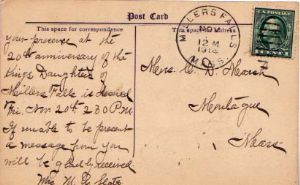 Post Card
This space for correspondence
This space for
MILLERS FALLS
NOV
12 M
1912
MASS.
your presence at the
20th anniversary of the
Kings Daughters of
Millers Falls is desired
Thu. Nov. 20th 2.30 P.M.
If unable to be present
a message from you
will be gladly received
Mrs. M.
Mrs.
Montague
Mass.